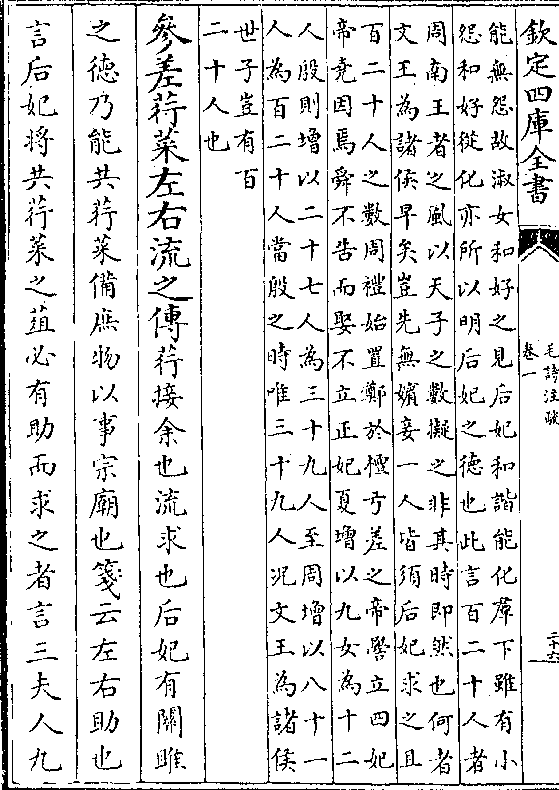 欽定四庫全書
毛詩注疏
卷一
二十六
能無怨故淑女和好之見后妃和諧能化羣下雖有小
怨和好從化亦所以明后妃之德也此言百二十人者
周南王者之風以天子之數擬之非其時即然也何者
文王為諸侯早矣豈先無嬪妾一人皆須后妃求之且
百二十人之數周禮始置鄭於檀弓差之帝嚳立四妃
帝堯因焉舜不告而娶不立正妃夏增以九女為十二
人殷則增以二十七人為三十九人至周增以八十一
人為百二十人當殷之時唯三十九人况文王為諸侯
世子豈有百
二十人也
參差荇菜左右流之傳荇接余也流求也后妃有關雎
之德乃能共荇菜備庶物以事宗廟也箋云左右助也
言后妃將共荇菜之葅必有助而求之者言三夫人九